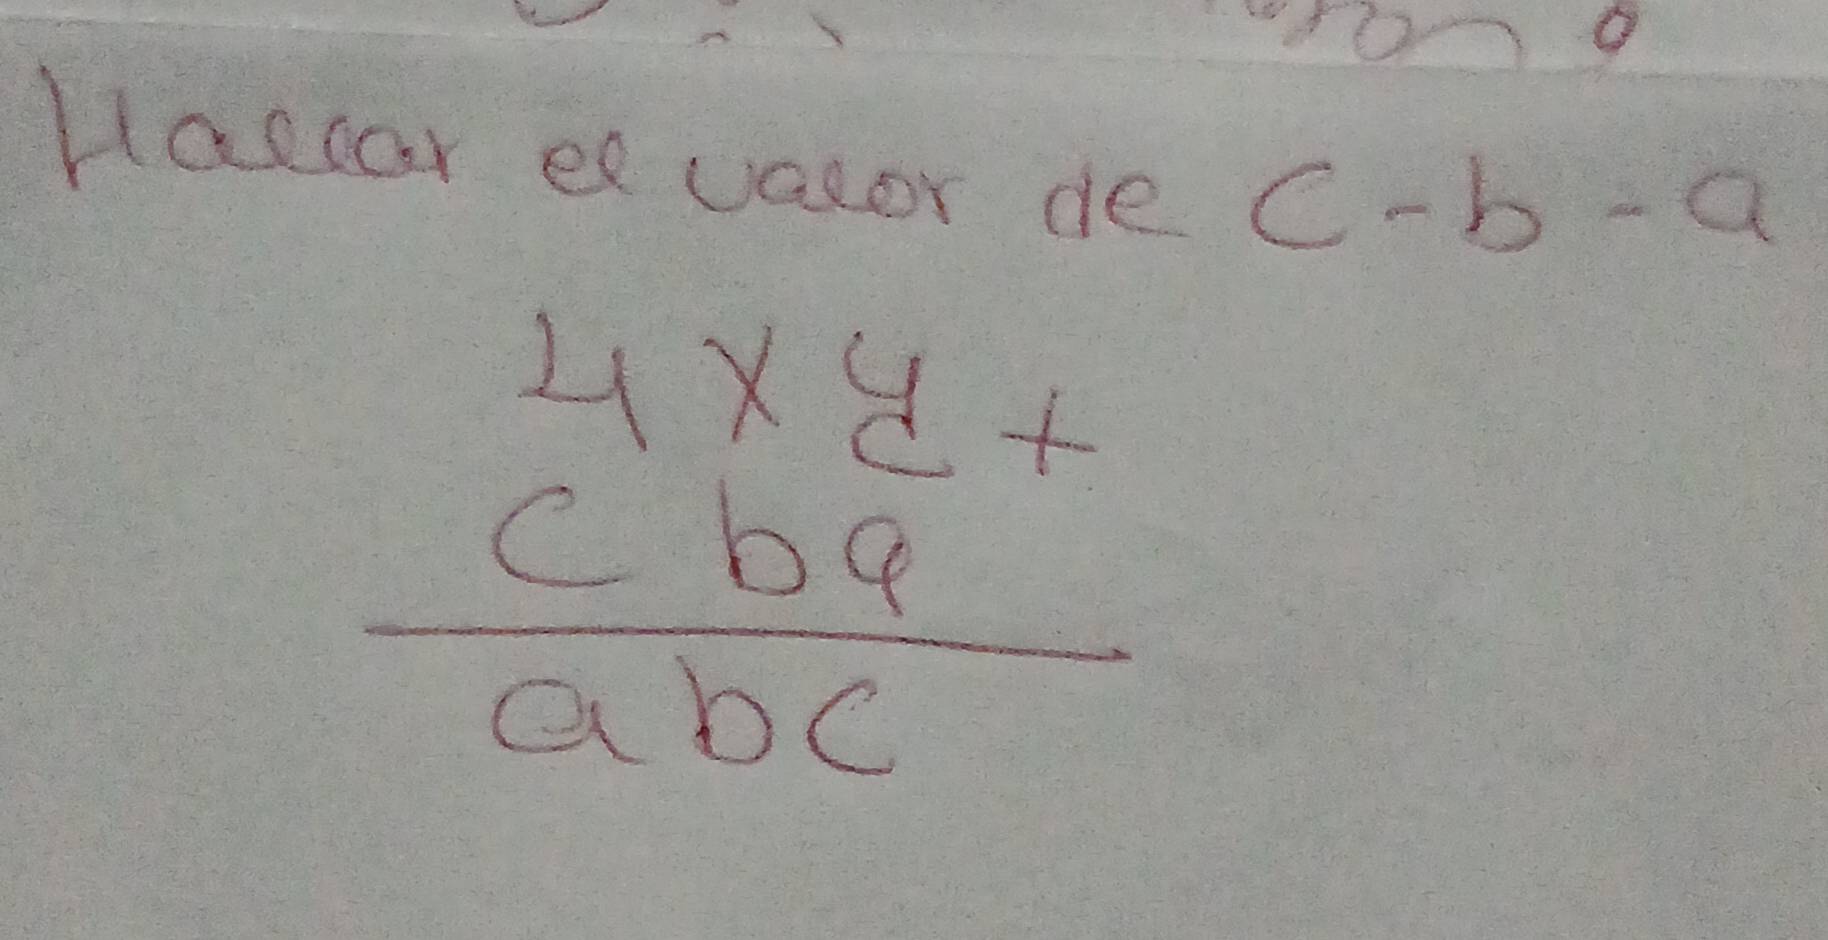 Hallar el valor de c - b - a
4 x y +
c b a
a b c